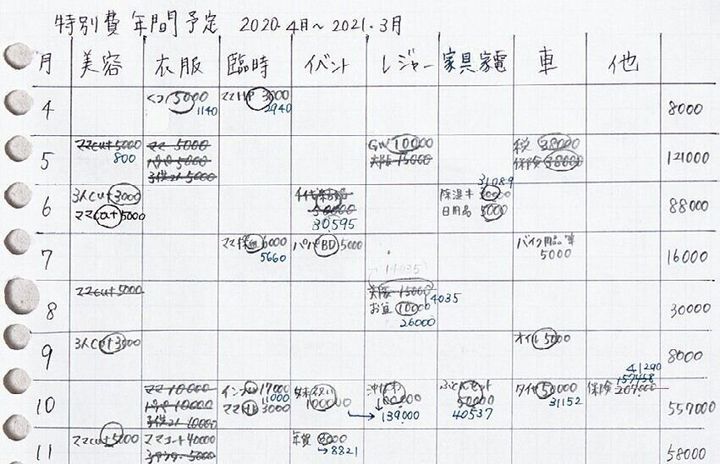 特別費年間予定 2020.4月〜2021.3月
月 美容 衣服 臨時 イベント レジャー 家具家電 車 他
4 くつ 5000 ママHP 3000 8000
1140 2940
5 ママcut 5000 ママ 5000 GW 10000 税 38000 121000
800 パパ 5000 大阪 15000 保険 38000
子供2人 5000
31089
6 3人cut 3000 除湿キ 88000
ママcut 5000 50000 日用品 5000
30595
7 ママ 6000 パパBD 5000 バイク用品 等 16000
5660 5000
14035
8 ママcut 5000 大阪 15000 14035 30000
お盆 10000
26000
9 3人cut 3000 オイル 5000 8000
41290
157458
10 ママ 10000 インフル 17000 沖なわ タイヤ 50000 保険 207000 557000
パパ 10000 11000 100000 100000 50000 31152
子供2人 10000 ママ 3000 139000 40537
11 ママcut 5000 ママコート 40000 年賀 8000 58000
5000 → 8821